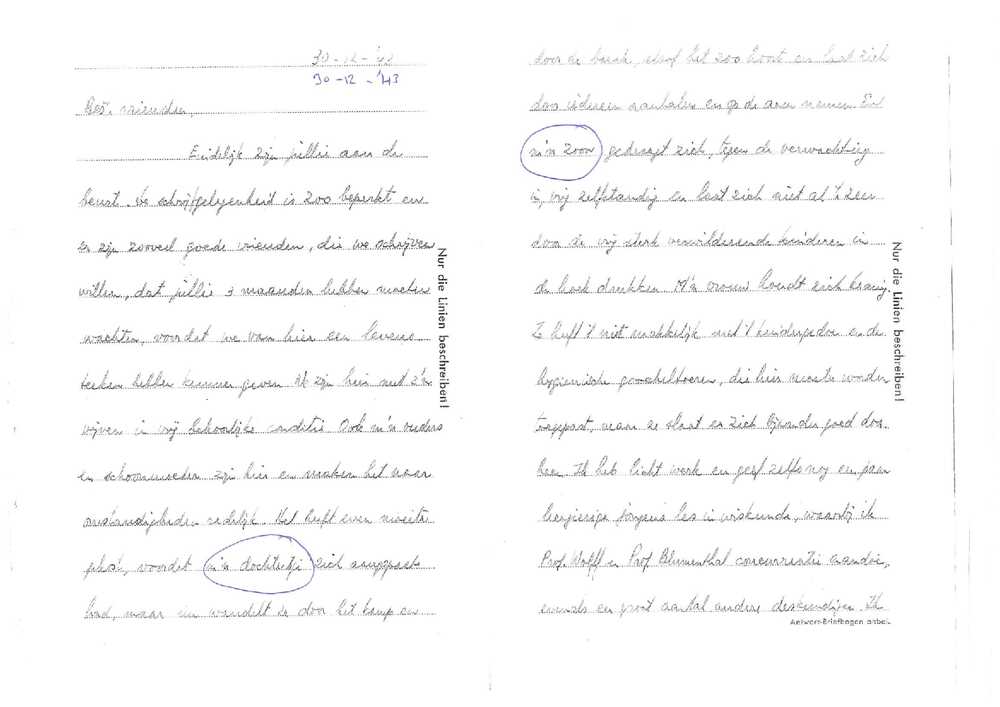 30-12-'43
30-12-'43
Beste vrienden,
Eindelijk zijn jullie aan de
beurt. De schrijfgelegenheid is zoo beperkt en
er zijn zooveel goede vrienden, die we schrijven
willen, dat jullie 3 maanden hebben moeten
wachten, voordat we van hier een levens-
teeken hebben kunnen geven. We zijn hier met z'n
vijven in vrij behoorlijke conditie. Ook m'n ouders
en schoonmoeder zijn hier en maken het naar
omstandigheden redelijk. Het heeft even moeite
gekost, voordat m'n dochtertje zich aangepast
had, maar nu wandelt ze door het kamp en
Nur die Linien beschreiben!
door de barak, alsof het zoo hoort en laat zich
door iedereen aanhalen en op de arm nemen. En
m'n zoon gedraagt zich, tegen de verwachting
in, vrij zelfstandig en laat zich niet al 't zeer
door de vrij sterk verwilderende kinderen in
de hoek drukken. M'n vrouw houdt zich kranig.
Ze heeft 't niet makkelijk met 't kindergedoe en de
hygiënische goocheltoeren, die hier moeten worden
toegepast, maar ze slaat er zich bijzonder goed door-
heen. Ik heb licht werk en geef zelfs nog een paar
leergierige jongens les in wiskunde, waarbij ik
Prof. Wolff en Prof. Blumenthal concurrentie aandoe,
evenals een groot aantal andere deskundigen. Ik
Nur die Linien beschreiben!
Antwort-Briefbogen anbei.